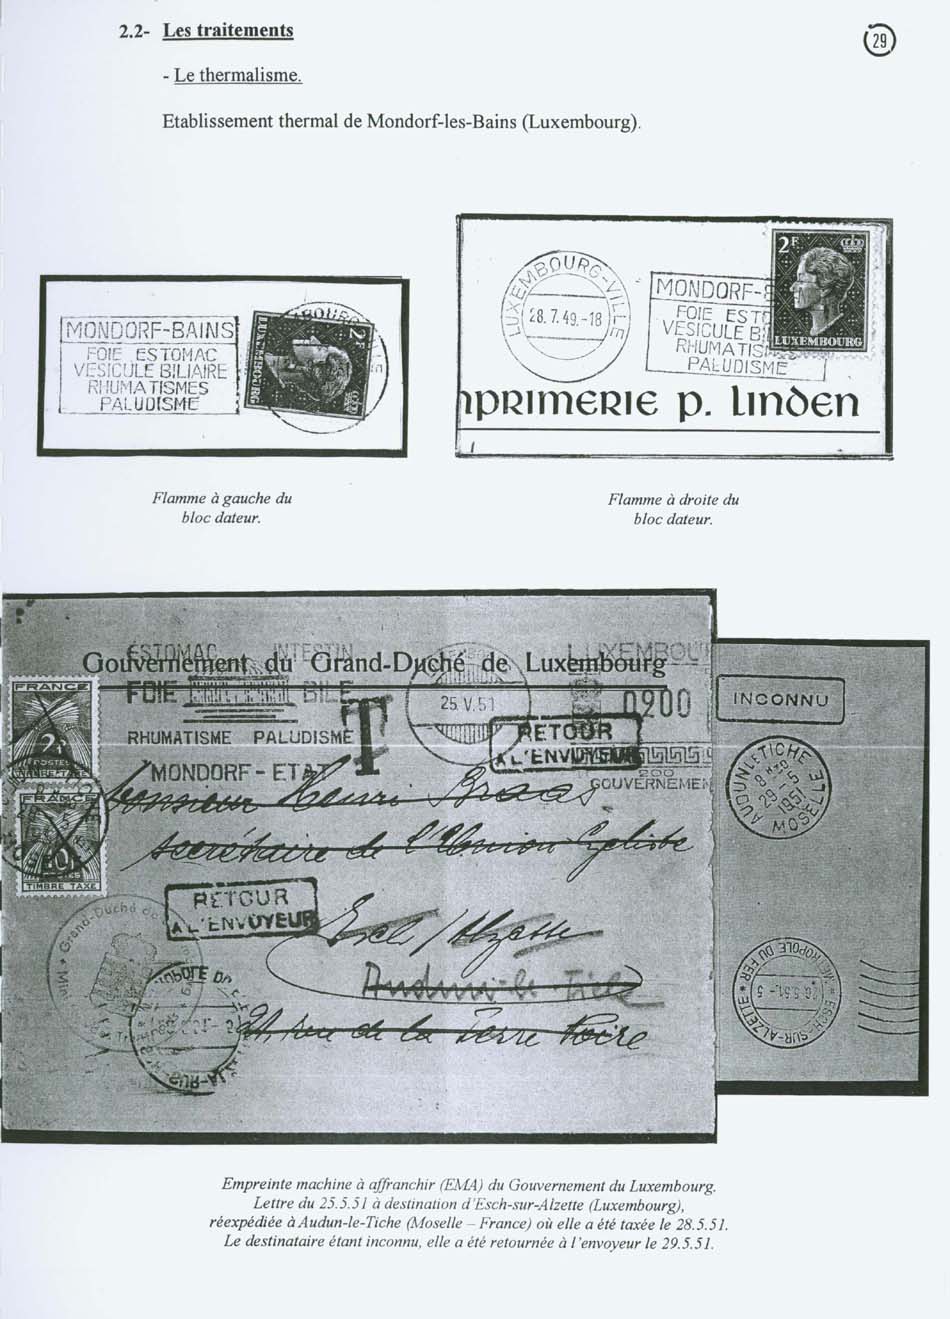 2.2- Les traitements
29
- Le thermalisme.
Etablissement thermal de Mondorf-les-Bains (Luxembourg).
MONDORF-BAINS
FOIE ESTOMAC
VESICULE BILIAIRE
RHUMATISMES
PALUDISME
2F
LUXEMBOURG
LUXEMBOURG-VILLE
28.7.49.-18
MONDORF-B
FOIE ESTO
VESICULE B
RHUMATIS
PALUDISME
2F
LUXEMBOURG
mprimerie p. linden
Flamme à gauche du
bloc dateur.
Flamme à droite du
bloc dateur.
ESTOMAC INTESTIN
LUXEMBOU
Gouvernement du Grand-Duché de Luxembourg
FOIE BILE
25.V.51
0200
RHUMATISME PALUDISME
T
RETOUR
A L'ENVOYEUR
MONDORF-ETAT
200
GOUVERNEMEN
FRANCE
2F
POSTES
TIMBRE TAXE
FRANCE
TIMBRE TAXE
Monsieur Henri Braas
secrétaire de l'Union Cycliste
RETOUR
A L'ENVOYEUR
Esch/Alzette
Audun-le-Tiche
rue de la Terre Noire
Grand-Duché de
INCONNU
AUDUN LE TICHE
29-5
1951
MOSELLE
METROPOLE DU FER
ESCH-SUR-ALZETTE
Empreinte machine à affranchir (EMA) du Gouvernement du Luxembourg.
Lettre du 25.5.51 à destination d'Esch-sur-Alzette (Luxembourg),
réexpédiée à Audun-le-Tiche (Moselle – France) où elle a été taxée le 28.5.51.
Le destinataire étant inconnu, elle a été retournée à l'envoyeur le 29.5.51.